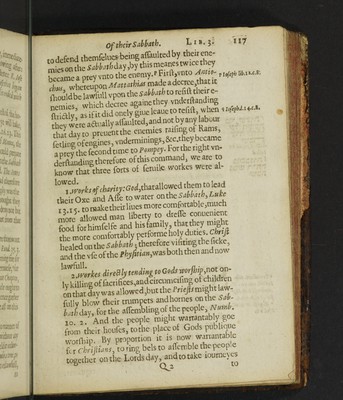 Of their Sabbath. LIB. 3. 117
to defend themselues being assaulted by their ene-
mies on the Sabbath day, by this meanes twice they
became a prey vnto the enemy. First, vnto Antio-
chus, whereupon Matathias made a decree, that it
should be lawfull vpon the Sabbath to resist their e-
nemies, which decree againe they vnderstanding
strictly, as if it did onely giue leaue to resist, when
they were actually assaulted, and not by any labour
that day to preuent the enemies raising of Rams,
setling of engines, vnderminings, &c. they became
a prey the second time to Pompey. For the right vn-
derstanding therefore of this command, we are to
know that three sorts of seruile workes were al-
lowed.
1. Works of charity: God, that allowed them to lead
their Oxe and Asse to water on the Sabbath, Luke
13. 15. to make their liues more comfortable, much
more allowed man liberty to dresse conuenient
food for himselfe and his family, that they might
the more comfortably performe holy duties. Christ
healed on the Sabbath; therefore visiting the sicke,
and the vse of the Physitian, was both then and now
lawfull.
2. Workes directly tending to Gods worship, not on-
ly killing of sacrifices, and circumcising of children
on that day was allowed, but the Priests might law-
fully blow their trumpets and hornes on the Sab-
bath day, for the assembling of the people, Numb.
10. 2. And the people might warrantably goe
from their houses, to the place of Gods publique
worship. By proportion it is now warrantable
for Christians, to ring bels to assemble the people
together on the Lords day, and to take iourneyes
Q 2 to